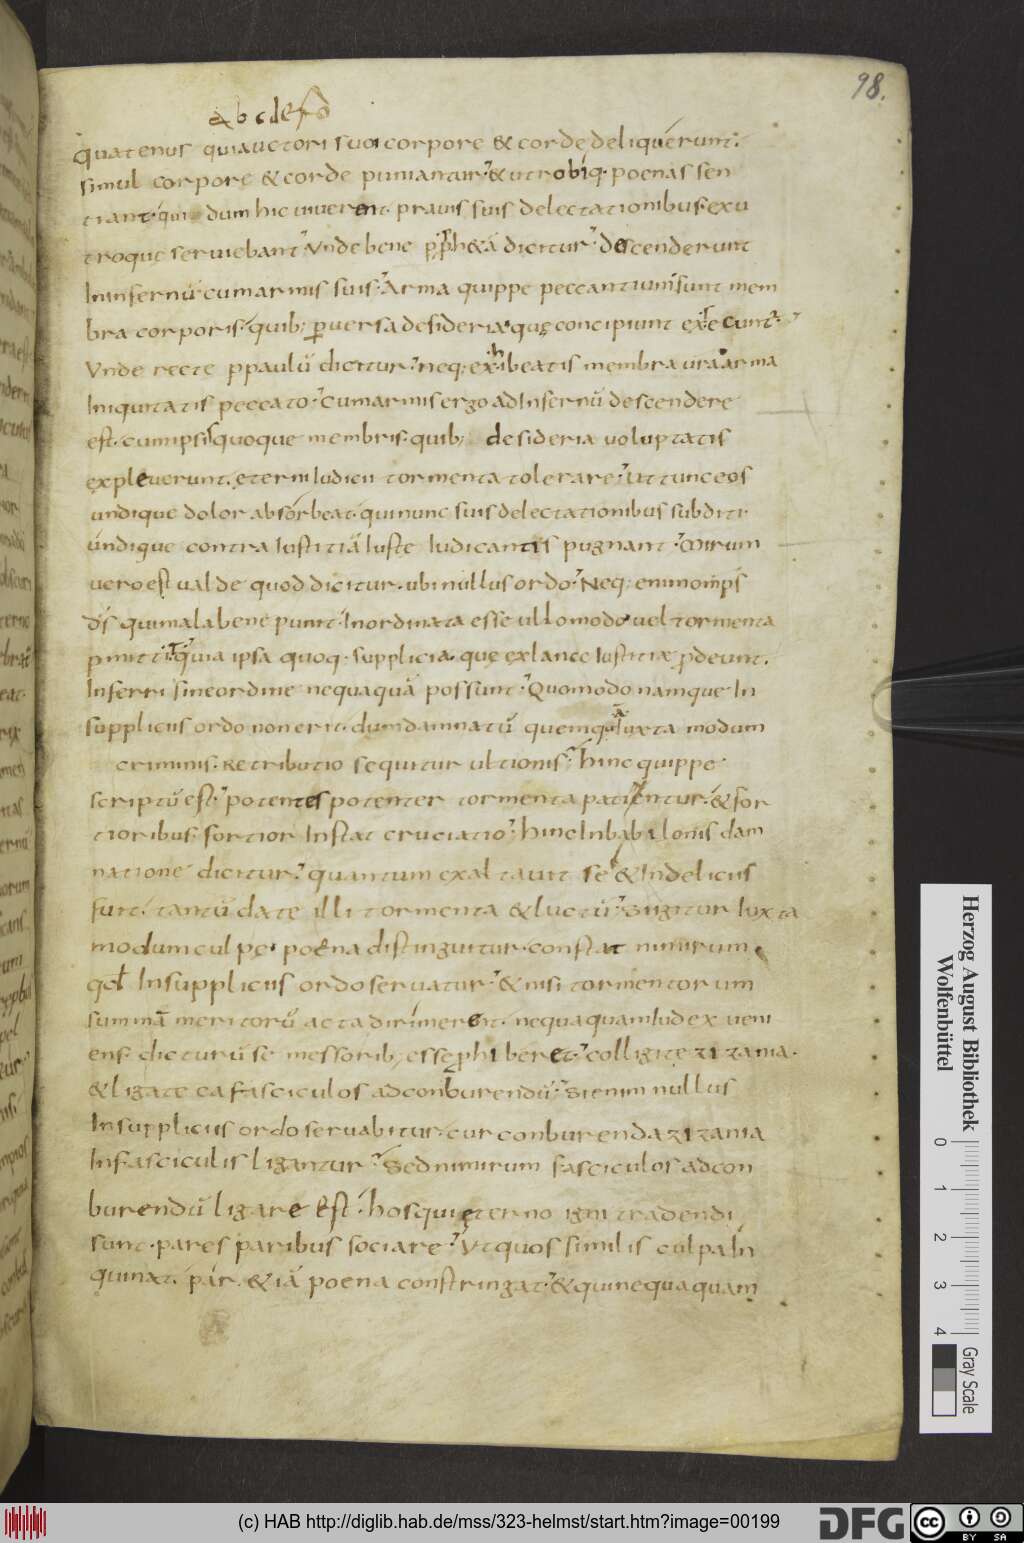 98.
abcdefg
Quatenus quia uctori suo corpore & corde deliquerunt.
simul corpore & corde puniantur. & utrobiq. poenas sen
tiant. qui dum hic uiuerent. prauis suis delectationibus. exu
troque seruiebant. Unde bene p pph&ā dicitur. descenderunt
In infernū cum armis suis. Arma quippe peccantium sunt mem
bra corporis. quib; puersa desideria quę concipiunt exsecunt.
Unde recte p paulū dicitur. neq; exhibeatis membra ura arma
Iniquitatis peccato. Cum armis ergo ad Infernū descendere
est. cum ipsis quoque membris. quib; desideria uoluptatis
expleuerunt. ęterni Iudicii tormenta tolerare. Ut tunc eos
undique dolor absorbeat. qui nunc suis delectationibus subditi.
undique contra Iustitiā Iuste Iudicantis pugnant. Mirum
uero est ualde quod dicitur. ubi nullus ordo. Neq; enim omps
ds qui mala bene punit. Inordinata esse ullo modo uel tormenta
pmittit. quia ipsa quoq. supplicia. quę ex lance Iustitiæ pdeunt.
Inferri sine ordine nequaquā possunt. Quomodo namque In
suppliciis ordo non erit. dum damnatū quemque Iuxta modum
criminis. Retributio sequitur ultionis. hinc quippe
scriptū est. potentes potenter tormenta patientur. & for
tioribus fortior Instat cruciatio. hinc In babilonis dam
natione dicitur. quantum exaltauit se & In deliciis
fuit. tantū date illi tormenta & luctū. Si igitur Iuxta
modum culpę poena distinguitur. constat nimirum
qd In suppliciis ordo seruatur. & nisi tormentorum
summā meritorū acta dirimerent. nequaquam Iudex ueni
ens. dicturū se messorib; esse phiberet. colligite zizania.
& ligate ea fasciculos ad conburendū. Si enim nullus
In suppliciis ordo seruabitur. cur conburenda zizania
In fasciculis ligantur. Sed nimirum fasciculos ad con
burendū ligare est. hos qui ęterno igni tradendi
sunt. pares paribus sociare. Ut quos similis culpa In
quinat. par. & iā poena constringat. & qui nequaquam
Herzog August Bibliothek
Wolfenbüttel
0 1 2 3 4
Gray Scale
(c) HAB http://diglib.hab.de/mss/323-helmst/start.htm?image=00199
DFG
cc BY SA